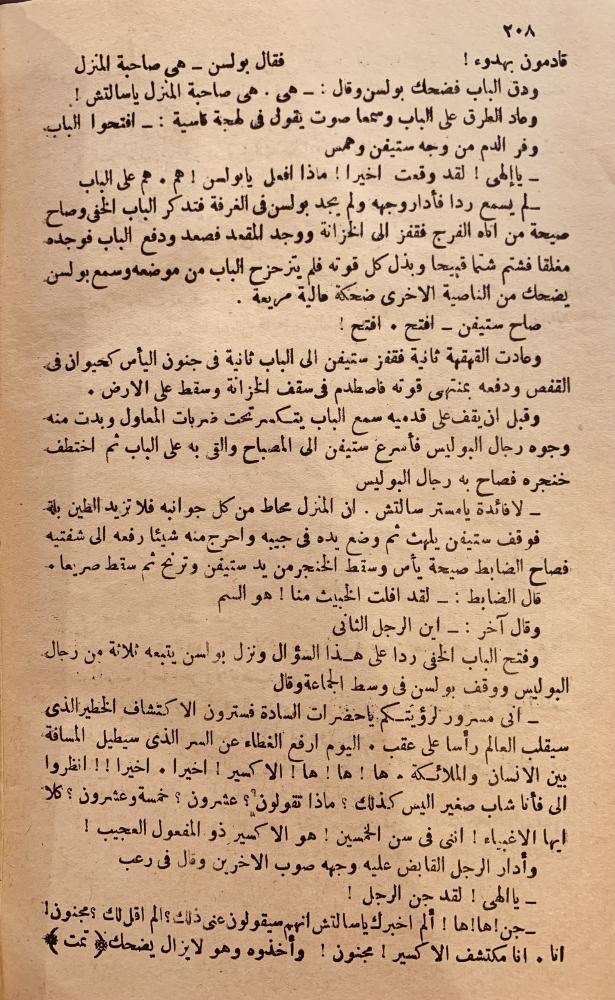 ٢٠٨
قادمون بهدوء ! فقال بولسن ــ هى صاحبة المنزل
ودق الباب فضحك بولسن وقال : ــ هى . هى صاحبة المنزل ياسالتش !
وعاد الطرق على الباب وسمعا صوت يقول فى لهجة قاسية : ــ افتحوا الباب.
وفر الدم من وجه ستيفن وهمس
ــ ياإلهى ! لقد وقعت اخيرا ! ماذا افعل يابولسن ! هم . هم على الباب
ــ لم يسمع ردا فأدار وجهه ولم يجد بولسن فى الغرفة فتذكر الباب الخفى وصاح
صيحة من اتاه الفرج فقفز الى الخزانة ووجد المقعد فصعد ودفع الباب فوجده
مغلقا فشتم شتما قبيحا وبذل كل قوته فلم يتزحزح الباب من موضعه وسمع بولسن
يضحك من الناصية الاخرى ضحكة عالية مريعة .
صاح ستيفن ــ افتح . افتح !
وعادت القهقهة ثانية فقفز ستيفن الى الباب ثانية فى جنون اليأس كحيوان فى
القفص ودفعه بمنتهى قوته فاصطدم فى سقف الخزانة وسقط على الارض .
وقبل ان يقف على قدميه سمع الباب يتكسر تحت ضربات المعاول وبدت منه
وجوه رجال البوليس فأسرع ستيفن الى المصباح والقى به على الباب ثم اختطف
خنجره فصاح به رجال البوليس
ــ لا فائدة يامستر سالتش . ان المنزل محاط من كل جوانبه فلا تزيد الطين بلة
فوقف ستيفن يلهث ثم وضع يده فى جيبه واحرج منه شيئا رفعه الى شفتيه
فصاح الضابط صيحة يأس وسقط الخنجر من يد ستيفن وترنح ثم سقط صريعا .
قال الضابط : ــ لقد افلت الخبيث منا ! هو السم
وقال آخر : ــ اين الرجل الثانى
وفتح الباب الخفى ردا على هــذا السؤال ونزل بولسن يتبعه ثلاثة من رجال
البوليس ووقف بولسن فى وسط الجماعة وقال
ــ انى مسرور لرؤيتــكم ياحضرات السادة فسترون الاكتشاف الخطير الذى
سيقلب العالم رأسا على عقب . اليوم ارفع الغطاء عن السر الذى سيطيل المسافة
بين الانسان والملائــكة . ها ! ها ! ها ! الاكسير ! اخيرا . اخيرا !! انظروا
الى فأنا شاب صغير اليس كذلك ؟ ماذا تقولون ؟ عشرون ؟ خمسة وعشرون ؟ كلا
ايها الاغبياء ! اننى فى سن الخمسين ! هو الاكسير ذو المفعول العجيب !
وأدار الرجل القابض عليه وجهه صوب الاخرين وقال فى رعب
ــ ياالهى ! لقد جن الرجل !
ــ جن ! ها ! ها ! ألم اخبرك ياسالتش انهم سيقولون عنى ذلك ؟ الم اقل لك ؟ مجنون !
انا . انا مكتشف الاكسير ! مجنون ! وأخذوه وهو لايزال يضحك ﴿ تمت ﴾